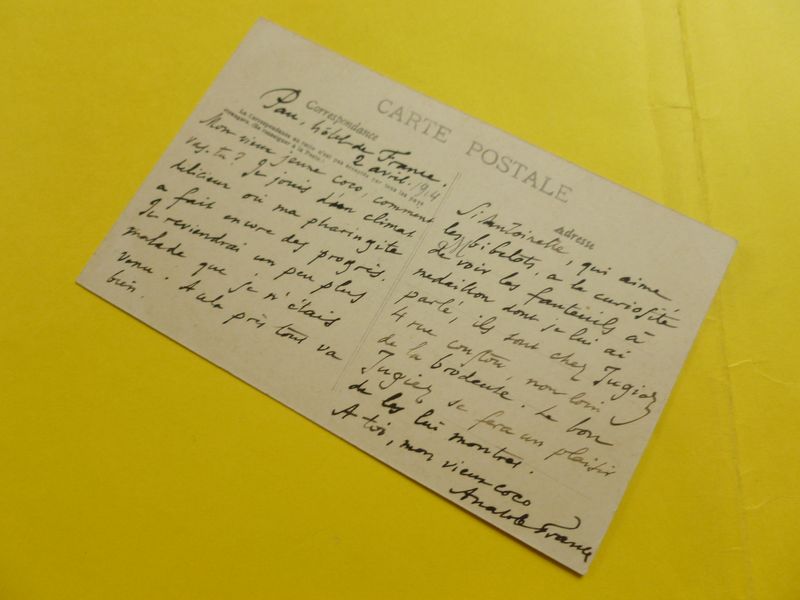 CARTE POSTALE
Correspondance
Adresse
Pau, hôtel de France.
2 avril. 1914
Mon vieux jeune coco, comment
vas-tu? Je jouis d'un climat
délicieux où ma pharingite
a fait encore des progrès.
Je reviendrai un peu plus
malade que je n'étais
venu. A cela près tout va
bien.
Si Antoinette, qui aime
les bibelots, a la curiosité
de voir les fauteuils à
médaillon dont je lui ai
parlé, ils sont chez Jugiez
4 rue non loin
de la brodeuse. Le bon
Jugiez se fera un plaisir
de les lui montrer.
A toi, mon vieux coco
Anatole France